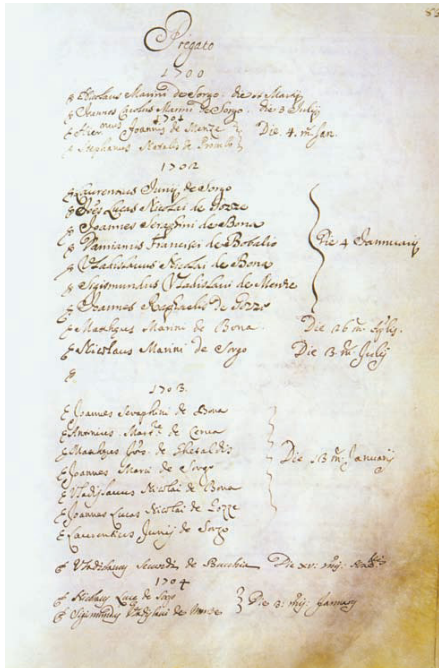 Pregato
1700
Nicolaus Marini de Sorgo. die Martij
Joannes Marini de Sorgo. die 3 Julij
1701
Joannis de Menze
Stephanus Natalis de Die. 4. m. Jan.
1702
Laurentius Junij de Sorgo
Joes Lucas Nicolai de Gozze
Joannes Serafini de Bona
Damianus Francisci de Bobalio
Vladislavus Nicolai de Bona
Sigismundus Vladislavi de Menze
Joannes Raphaelis de Gozze
Die 4 Jannuarij
Matthæus Marini de Bona. Die 16 m.
Nicolaus Marini de Sorgo Die 13 m. Julij
1703.
Joannes Seraphini de Bona
Antonius de Cerva
Matthæus de Ghetaldis
Joannes Marini de Sorgo
Vladislavus Nicolai de Bona
Joannes Lucas Nicolai de Gozze
Laurentius Junij de Sorgo
Die 13 m. Januarij
Vladislavus de Die xv: mij:
1704
Nicolaus Luca de Sorgo
Sigismundus Vladislavi de Menze
Die 3: mij: January